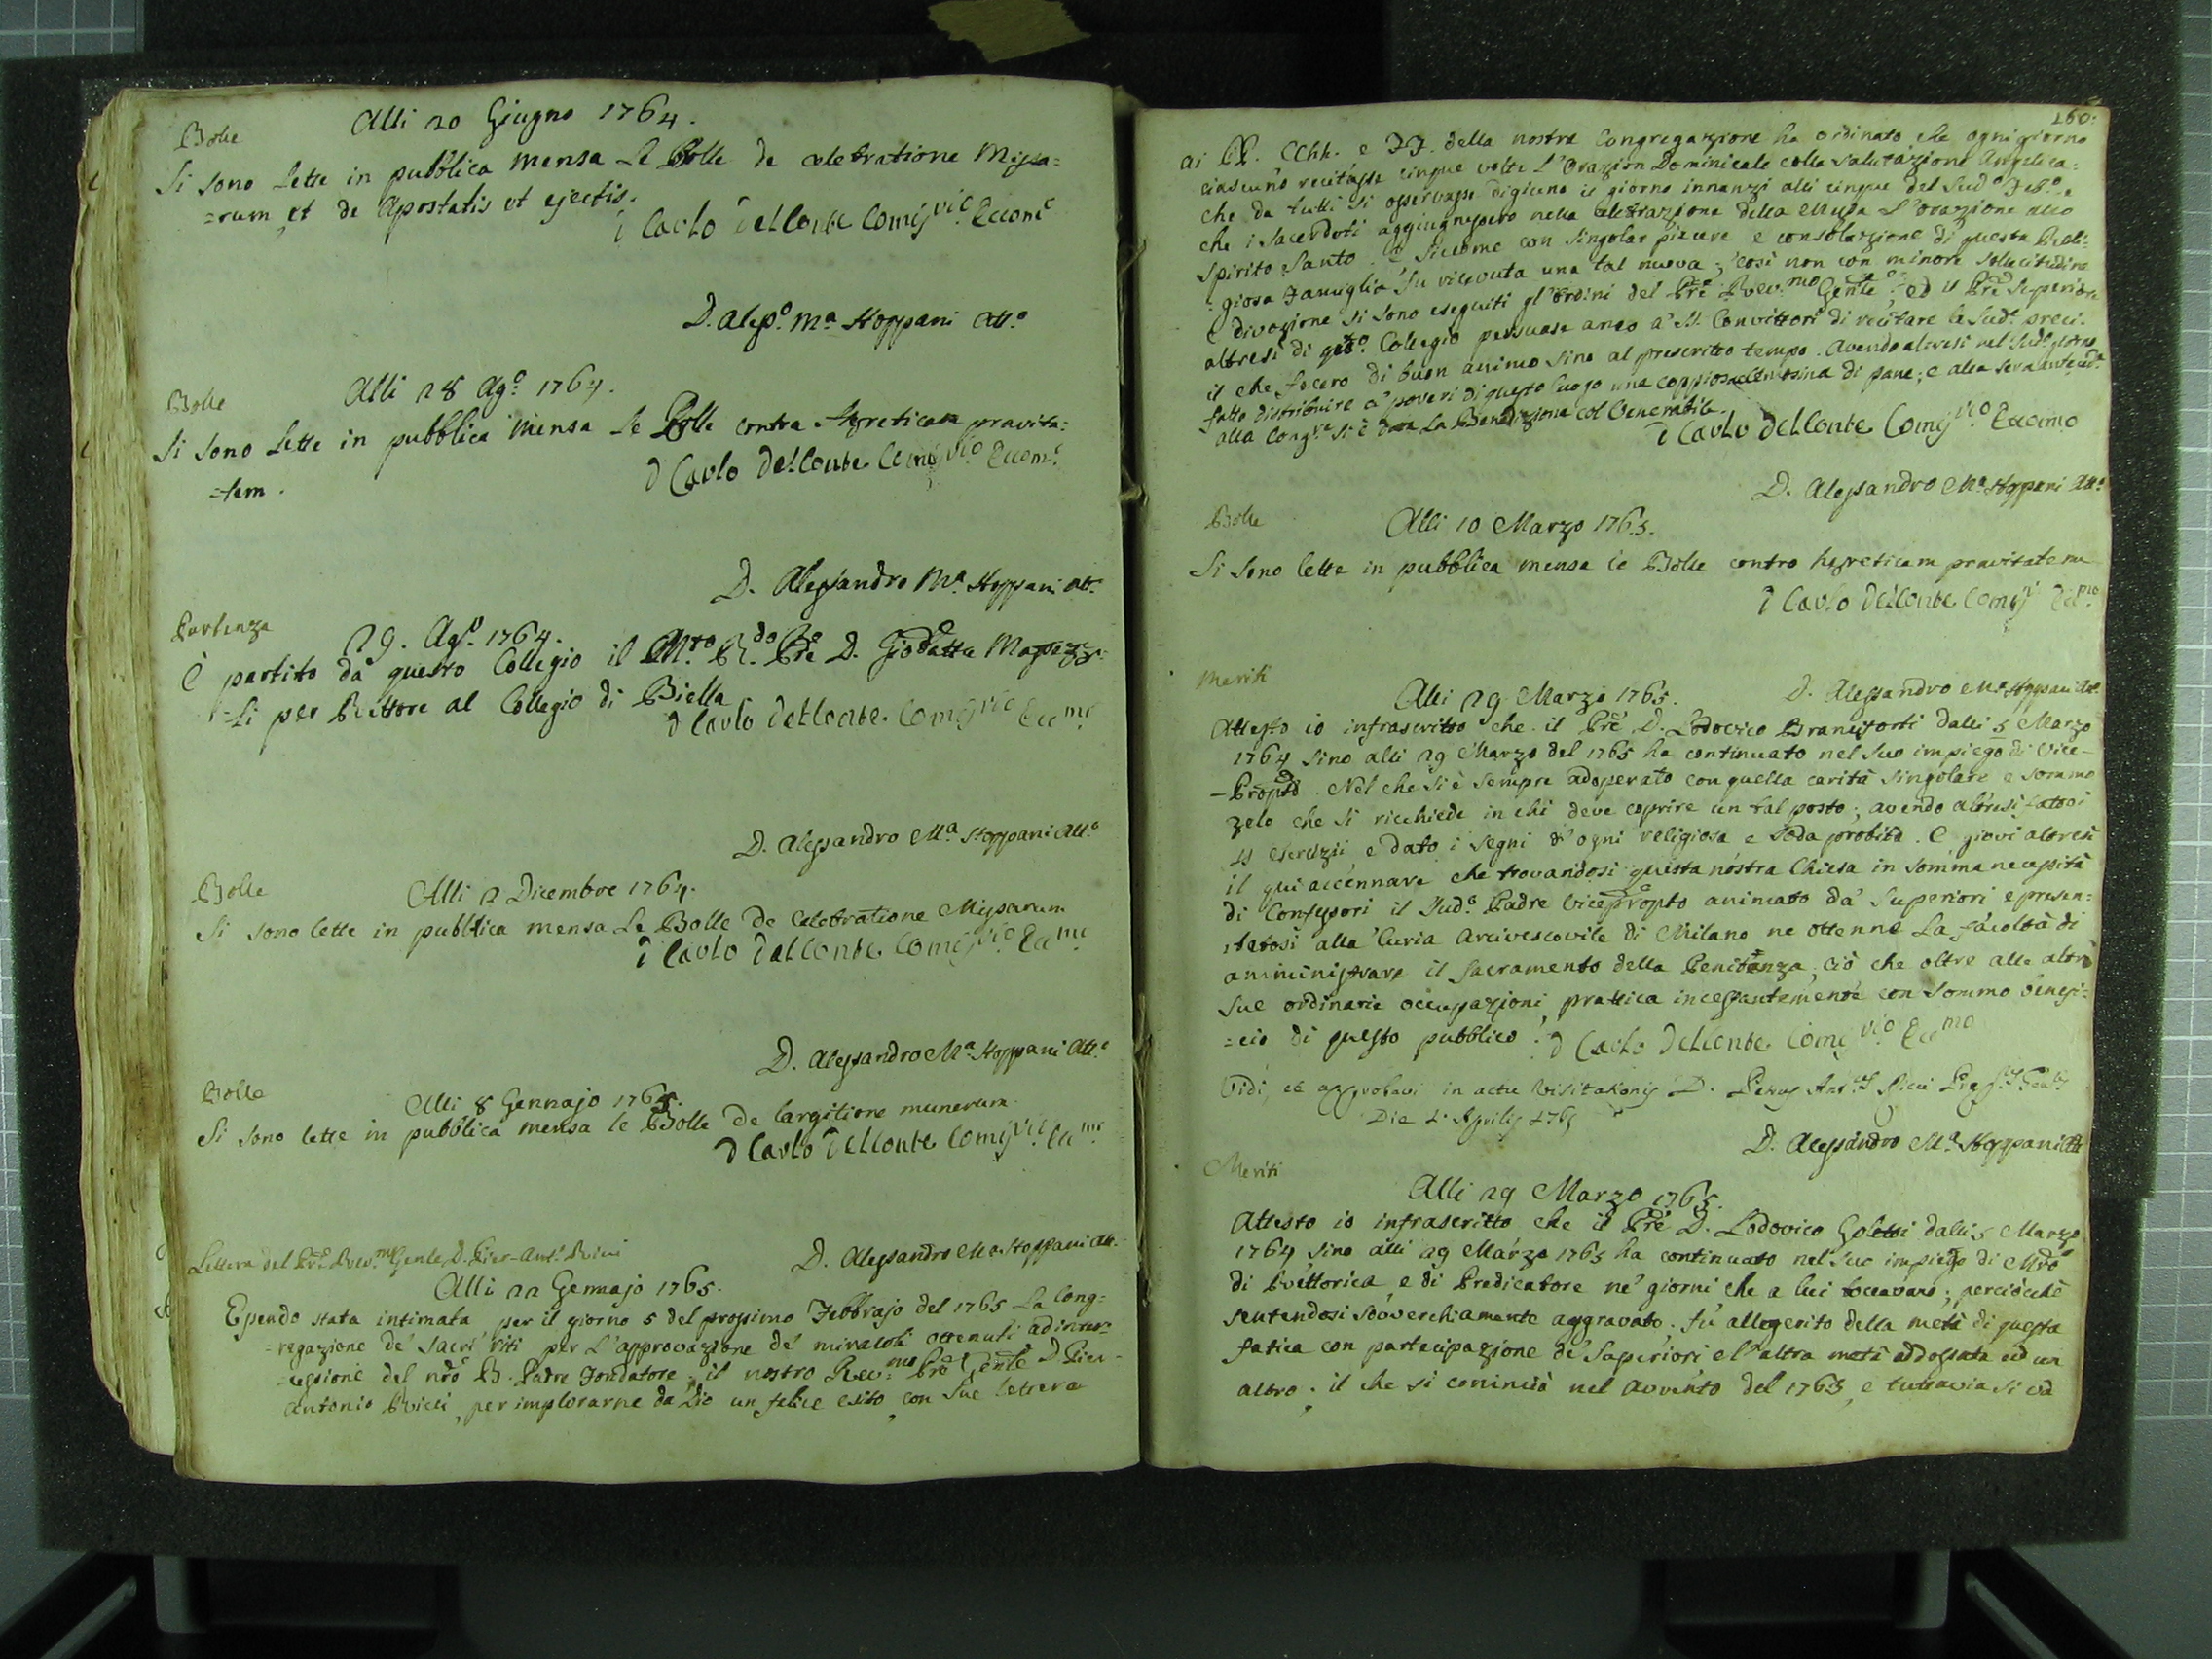 Bolle
Alli 20 Giugno 1764.
Si sono lette in pubblica mensa le Bolle de celebratione Missa=
=rum, et de Apostatis et ejectis.
D Carlo Delconte
D. Aless.o M.a Stoppani Att.o
Bolle
Alli 28 Ag.o 1764.
Si sono lette in pubblica mensa le Bolle contra hereticam pravita=
=tem.
D Carlo Delconte
D. Alessandro M.a Stoppani Att.o
Partenza
29. Ag.o 1764.
È partito da questo Collegio il M.to R.do Pre D. Giodatta
=li per Rettore al Collegio di Biella
D Carlo Delconte
D. Alessandro M.a Stoppani Att.o
Bolle
Alli 2 Dicembre 1764.
Si sono lette in pubblica mensa le Bolle de Celebratione Missarum
D Carlo Delconte
D. Alessandro M.a Stoppani Att.o
Bolle
Alli 8 Gennajo 1765.
Si sono lette in pubblica mensa le Bolle de largitione munerum
D Carlo Delconte
D. Alessandro M.a Stoppani Att.o
Lettera del Pre Rev.mo Gnle D. Pier-Ant.o Ricci
Alli 22 Gennajo 1765.
Essendo stata intimata per il giorno 5 del prossimo Febbrajo del 1765 la Cong=
=regazione de' Sacri Riti per l'approvazione de' miracoli ottenuti ad inter=
=cessione del nro B. Padre Fondatore; il nostro Rev.mo Pre Gente D. Pier-
Antonio Ricci, per implorarne da Dio un felice esito, con sue lettere
160.
ai PP. CChh. e FF. della nostra Congregazione ha ordinato che ogni giorno
ciascuno recitasse cinque volte l'Orazion Dominicale colla salutazione Angelica:
che da tutti si osservasse digiuno il giorno innanzi alli cinque del sud.o Feb.o e
che i Sacerdoti aggiugnessero nella celebrazione della Messa l'orazione allo
Spirito Santo. E siccome con singolar piacere e consolazione di questa Reli=
=giosa Famiglia fu ricevuta una tal nuova; così non con minore sollecitudine
e divozione si sono eseguiti gl'ordini del Pre Rev.mo Gente; ed il Pre Superiore
altresì di qsto Collegio persuase anco a' SS. Convittori di recitare le sud.e preci.
il che fecero di buon animo sino al prescritto tempo. Avendo altresì nel sud.o giorno
fatto distribuire a' poveri di questo luogo una coppiosa elemosina di pane; e alla sera
alla Cong.ne si è data la Benedizione col Venerabile.
D Carlo Delconte
D. Alessandro M.a Stoppani Att.o
Bolle
Alli 10 Marzo 1765.
Si sono lette in pubblica mensa le Bolle contro hereticam pravitatem
D Carlo Delconte
D. Alessandro M.a Stoppani Att.o
Meriti
Alli 29 Marzo 1765.
Attesto io infrascritto che il Pre D. Lodovico Branciforti dalli 5 Marzo
1764 sino alli 29 Marzo del 1765 ha continuato nel suo impiego di Vice-
-Propto. Nel che si è sempre adoperato con quella carità singolare e sommo
zelo che si ricchiede in chi deve coprire un tal posto; avendo altresì fatto i
SS esercizii, e dato i segni d'ogni religiosa e soda probità. E giovi altresì
il qui accennare che trovandosi questa nostra Chiesa in somma necessità
di Confessori il sud.o Padre Vicepropto animato da' Superiori e presen=
tatosi alla Curia Arcivescovile di Milano ne ottenne la facoltà di
amministrare il sacramento della Penitenza, ciò che oltre alle altre
sue ordinarie occupazioni, prattica incessantemente con sommo benefi=
=cio di questo pubblico.
D Carlo Delconte
Vidi, et approbavi in actu Visitationis D. Petrus Ant.us Ricci
Die 2 Aprilis 1765
D. Alessandro M.a Stoppani Att.o
Meriti
Alli 29 Marzo 1765.
Attesto io infrascritto che il Pre D. Lodovico dalli 5 Marzo
1764 sino alli 29 Marzo 1765 ha continuato nel suo impiego di Mro
di Rettorica, e di Predicatore ne' giorni che a lui toccavano; perciocchè
sentendosi soverchiamente aggravato, fu allegerito della metà di questa
fatica con partecipazione de' Superiori e l'altra metà addossata ad un
altro: il che si cominciò nel Avvento del 1763, e tuttavia si va